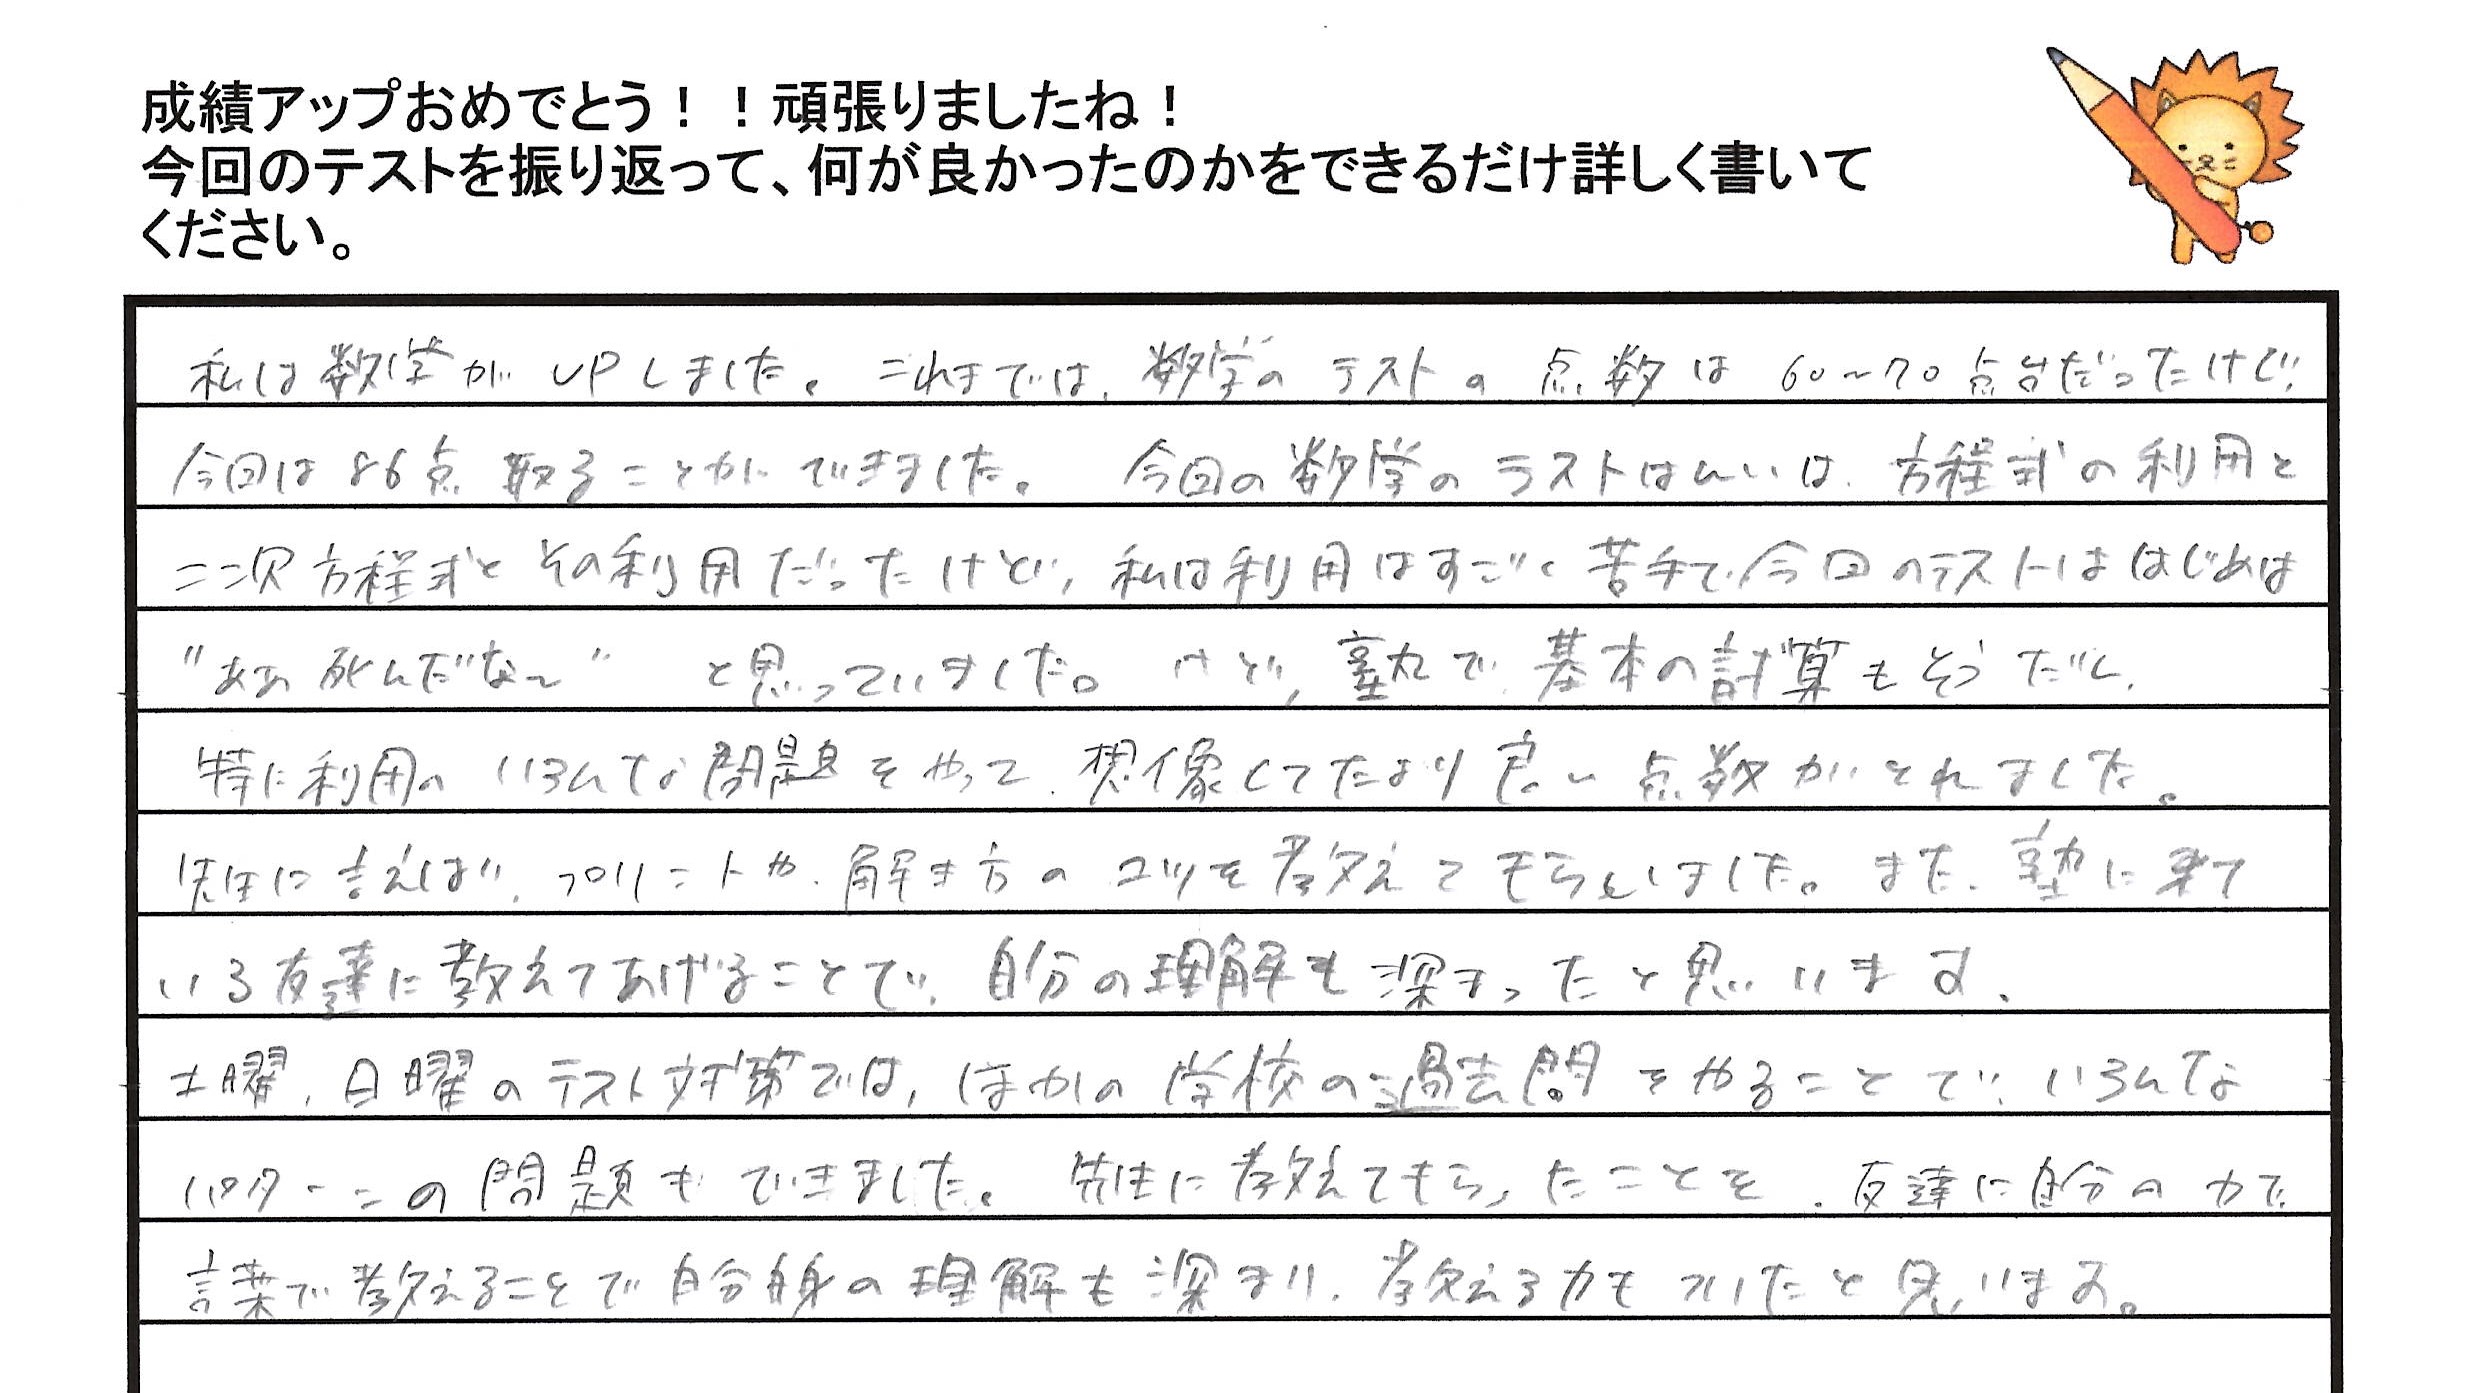 成績アップおめでとう！！頑張りましたね！
今回のテストを振り返って、何が良かったのかをできるだけ詳しく書いて
ください。
私は数学がUPしました。これまでは、数学のテストの点数は60〜70点台だったけど、
今回は86点取ることができました。今回の数学のテストはんいは、方程式の利用と
二次方程式とその利用だったけど、私は利用はすごく苦手で、今回のテストははじめは
"ああ死んだな〜"と思っていました。けど、塾で、基本の計算もそうだし、
特に利用のいろんな問題をやって、想像してたより良い点数がとれました。
先生に言えば、プリントや、解き方のコツを教えてもらいました。また、塾に来て
いる友達に教えてあげることで、自分の理解も深まったと思います、
土曜、日曜のテスト対策では、ほかの学校の過去問をやることで、いろんな
パターンの問題もできました。先生に教えてもらったことを、友達に自分の力で、
言葉で教えることで自分自身の理解も深まり、教える力もついたと思います。